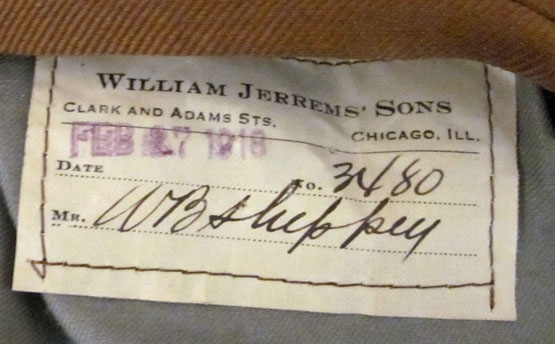 WILLIAM JERREMS' SONS
CLARK AND ADAMS STS.
CHICAGO, ILL.
FEB 27 1918
DATE
No. 3480
MR. WB Sheppey